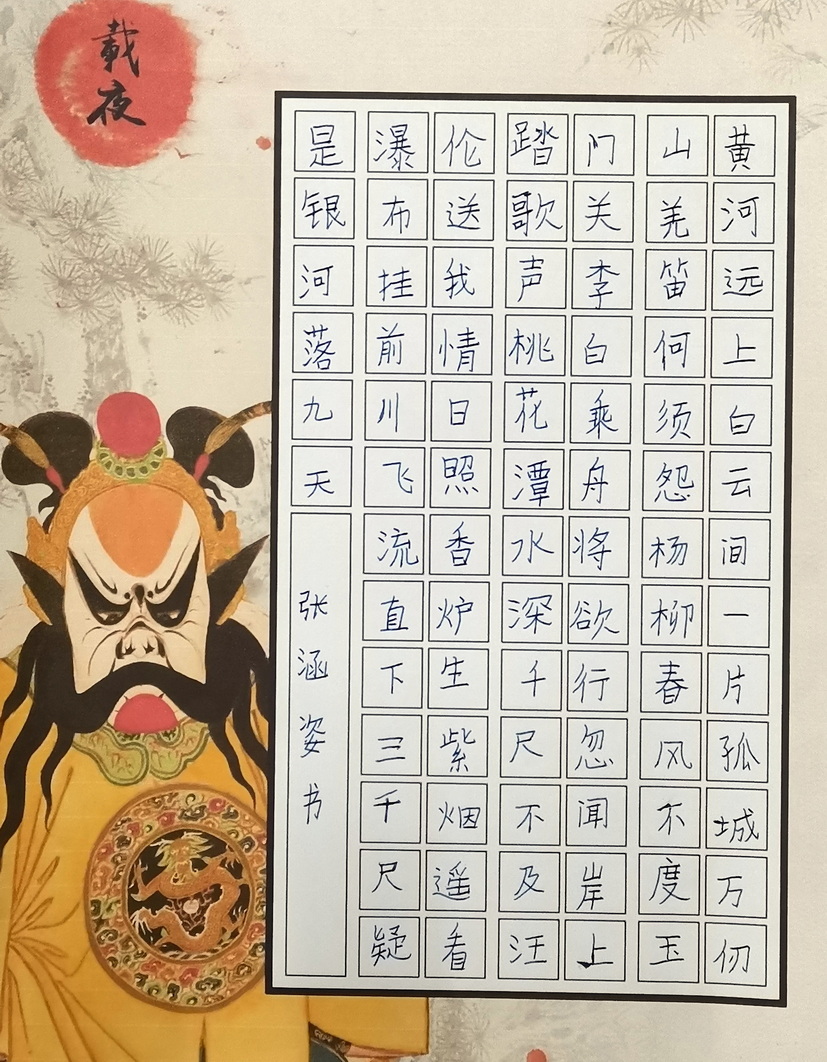 黄河远上白云间一片孤城万仞
山羌笛何须怨杨柳春风不度玉
门关李白乘舟将欲行忽闻岸上
踏歌声桃花潭水深千尺不及汪
伦送我情日照香炉生紫烟遥看
瀑布挂前川飞流直下三千尺疑
是银河落九天
张涵姿书
載夜